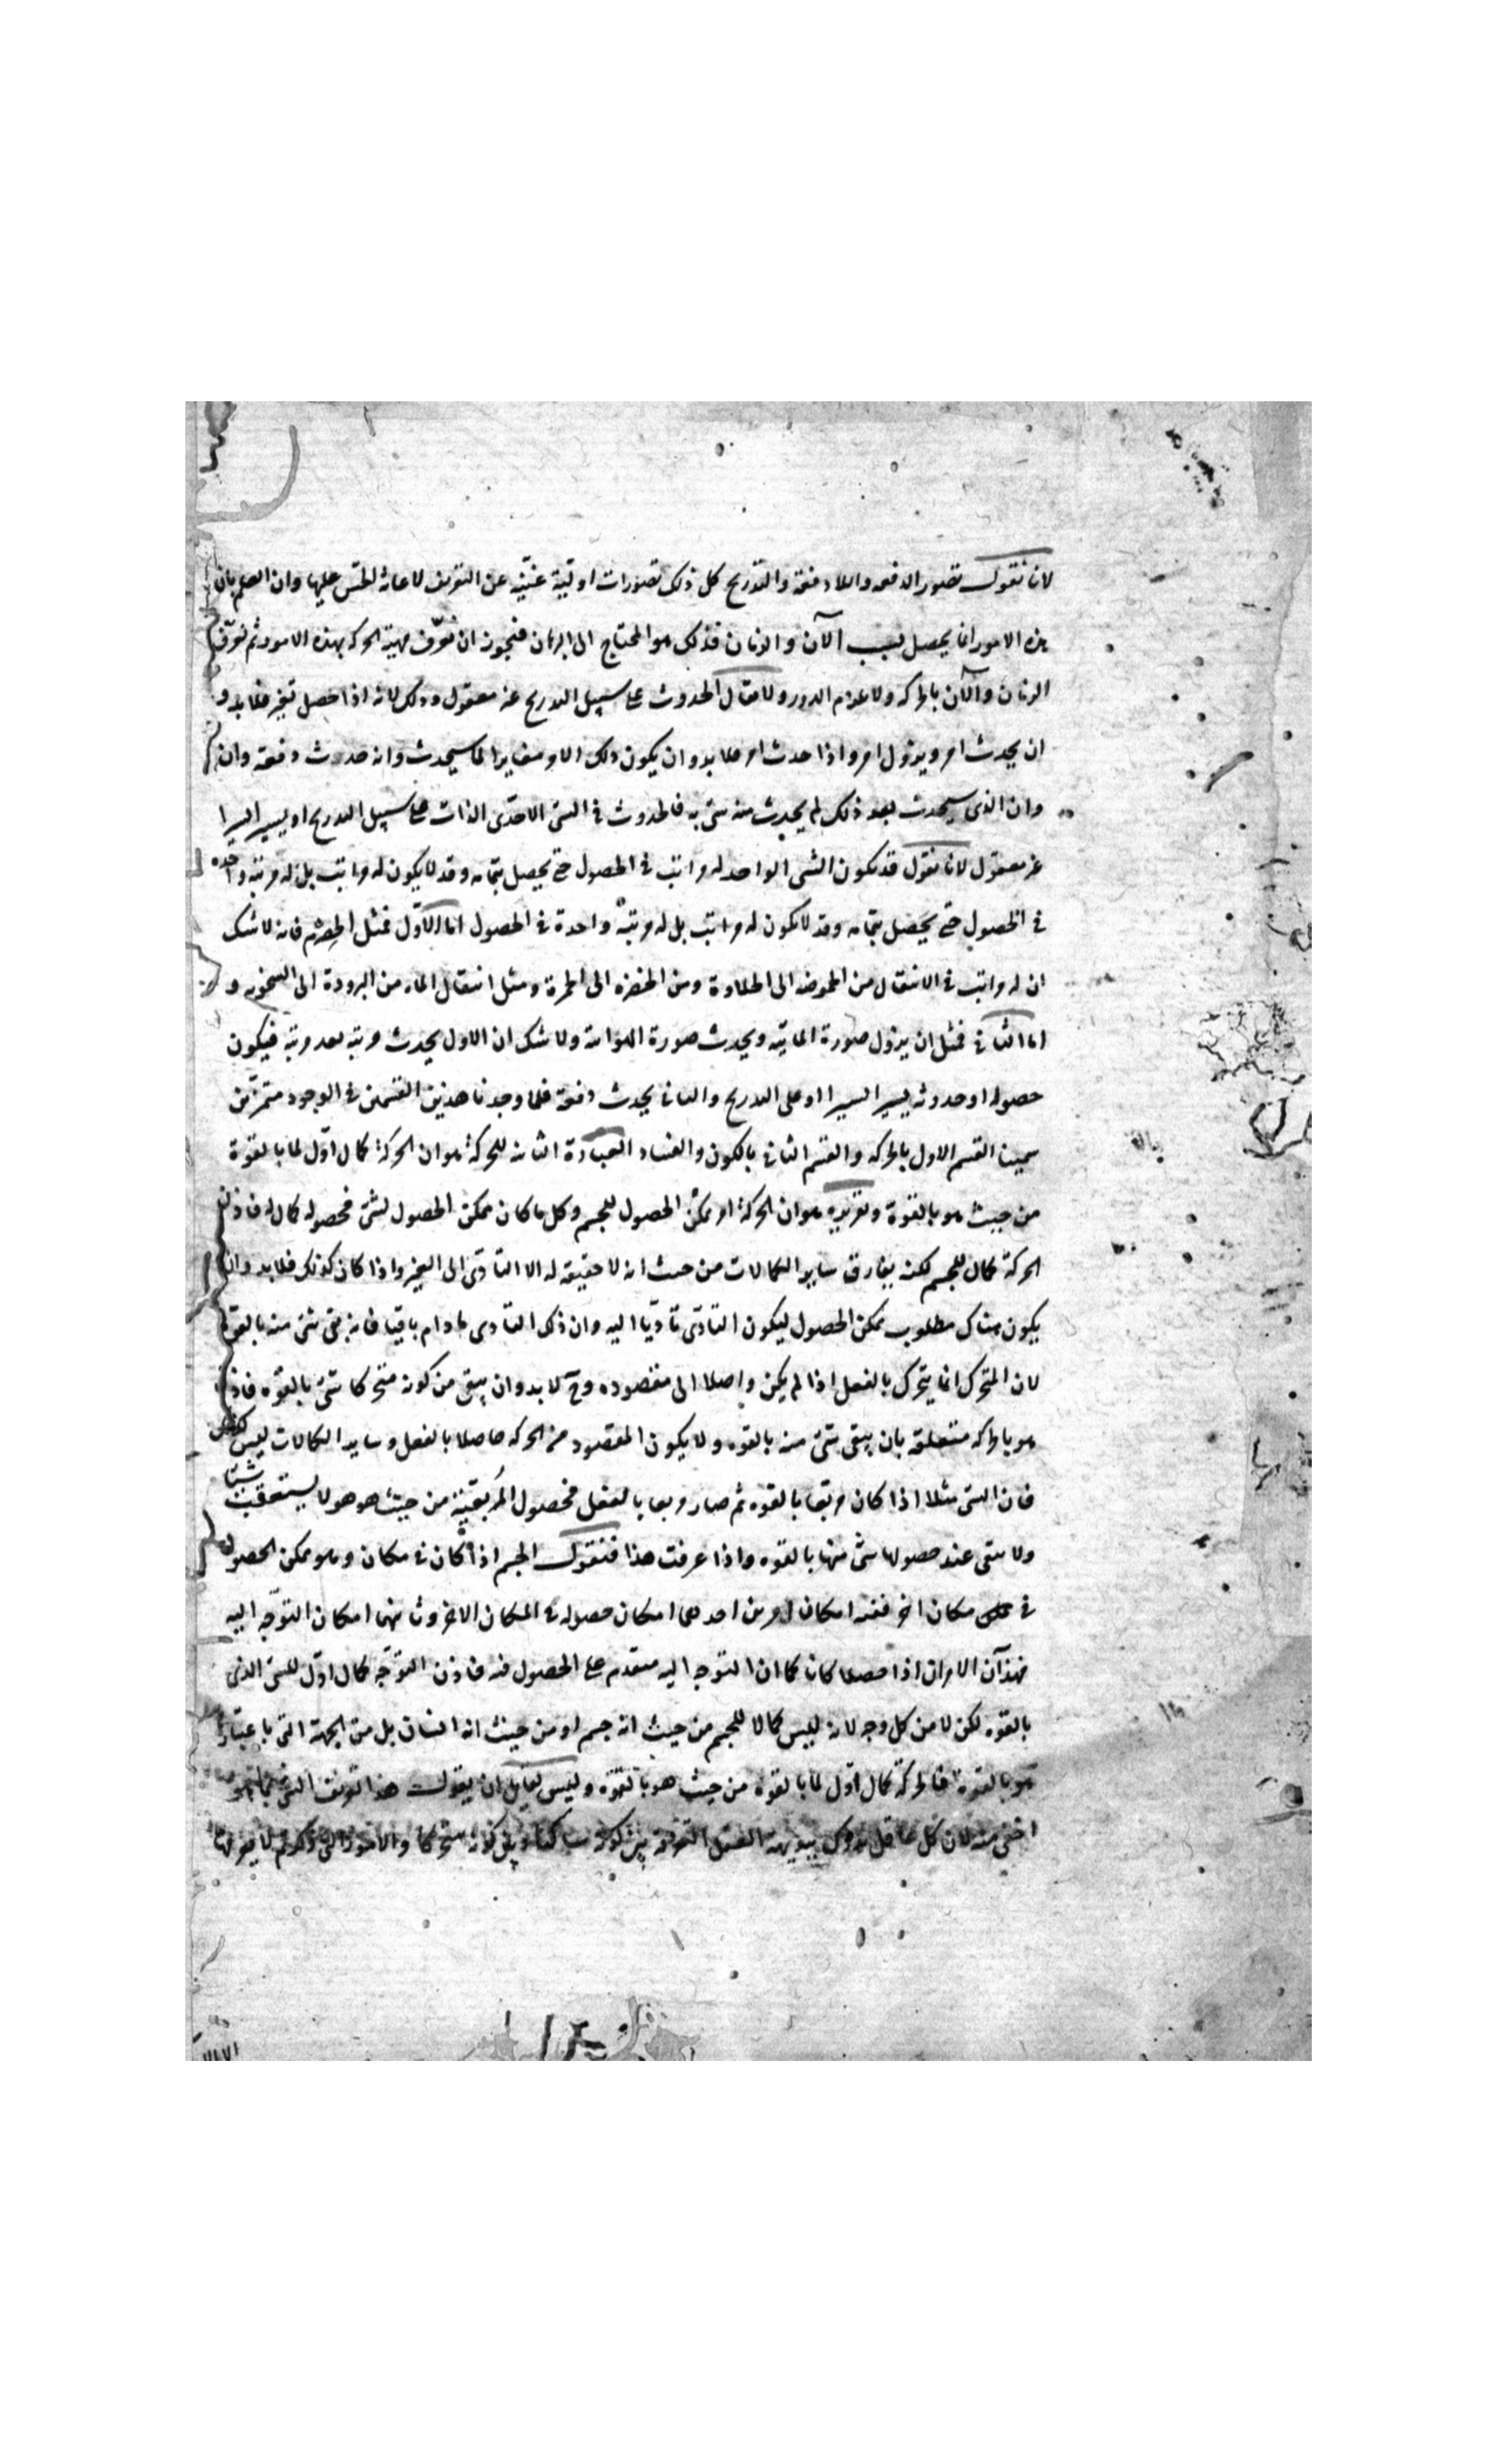 لانا نقول تصور الدفعه واللا دفعة والتدريج كل ذلك تصورات اولية غنيّة عن التعريف لاعانة الحسّ عليها وان العلم بان
هذه الامور انما يحصل بسبب الآن والزمان فذلك هو المحتاج الى البرهان فيجوز ان نعرّف مهية الحركه بهذه الامور ثم نعرّف
الزمان والآن بالحركه ولا يلزم الدور ولا يقال الحدوث على سبيل التدريج غير معقول وذلك لانه اذا حصل تغير فلا بد و
ان يحدث امر و يزول امر واذا حدث امر فلا بد وان يكون ذلك الامر مغايرا لما سيحدث وانه حدوث دفعة وان
وان الذى سيحدث بعد ذلك لم يحدث منه شى به فالحدوث فى الشى الاحدّى الذات على سبيل التدريج او يسيرا يسيرا
غير معقول لانا نقول قد يكون الشى الواحد له مراتب فى الحصول حتى يحصل بتمامه وقد لا يكون له مراتب بل له مرتبة واحده
فى الحصول حتى يحصل بتمامه وقد لا يكون له مراتب بل له مرتبة واحدة فى الحصول اما الاوّل فمثل الحصرم فانه لا شك
ان له مراتب فى الانتقال من الحموضه الى الحلاوة ومن الخضره الى الحمرة ومثل انتقال الماء من البرودة الى السخونه و
اما الثانى فمثل ان يزول صورة المائيّه ويحدث صورة الهوائية ولا شك ان الاول يحدث مرتبه بعد مرتبة فيكون
حصوله او حدوثه يسيرا يسيرا او على التدريج والثانى يحدث دفعة فلما وجدنا هذين القسمين فى الوجود متميزين
سمينا القسم الاول بالحركه والقسم الثانى بالكون والفساد العبارة الثانية للحركة هو ان الحركة كمال اوّل لما بالقوة
من حيث هو بالقوة وتقريره هو ان الحركة امر ممكن الحصول للجسم وكل ما كان ممكن الحصول لشئ فحصوله كمال له فاذن
الحركة كمال للجسم لكنه يفارق ساير الكمالات من حيث انه لا حقيقه له الا التأدّى الى الغير واذا كان كذلك فلا بد وان
يكون هناك مطلوب ممكن الحصول ليكون التادّى تاديّا اليه وان ذلك التادى ما دام باقيا فانه بقى شئ منه بالقوة
لان المتحرك انما يتحرك بالفعل اذا لم يكن واصلا الى مقصوده وح لا بد وان يبقى من كونه متحركا شئ بالقوه فاذن
هو بالحركه متعلقة بان يبقى شئ منه بالقوه ولا يكون المقصود من الحركه حاصلا بالفعل وساير الكمالات ليس كذلك
فان الشى مثلا اذا كان مربّعا بالقوه ثم صار مربعا بالفعل فحصول المربعيّة من حيث هو هو لا يستعقب شيئا
ولا يبقى عند حصولها شئ منها بالقوه واذا عرفت هذا فنقول الجسم اذا كان فى مكان وهو ممكن الحصول
فى مكان اخر ففيه امكان امرين احدهما امكان حصوله فى المكان الاخر وثانيهما امكان التوجّه اليه
فهذان الامران اذا حصلا كانا كما ان التوجه اليه متقدم على الحصول فيه فاذن التوجّه كمال اوّل للشئ الذى
بالقوه لكن لا من كل وجه لانه ليس كمالا للجسم من حيث انه جسم او من حيث انه انسان بل من الجهة التى باعتبارها
هو بالقوه فالحركة كمال اوّل لما بالقوه من حيث هو بالقوّه وليس لقايل ان يقول هذا تعريف الشئ بما هو
اخفى منه لان كل عاقل يدرك ببديهة العقل التفرقة بين كونه ساكنا وبين كونه متحركا والامور التى ذكرتم لا يعرفها